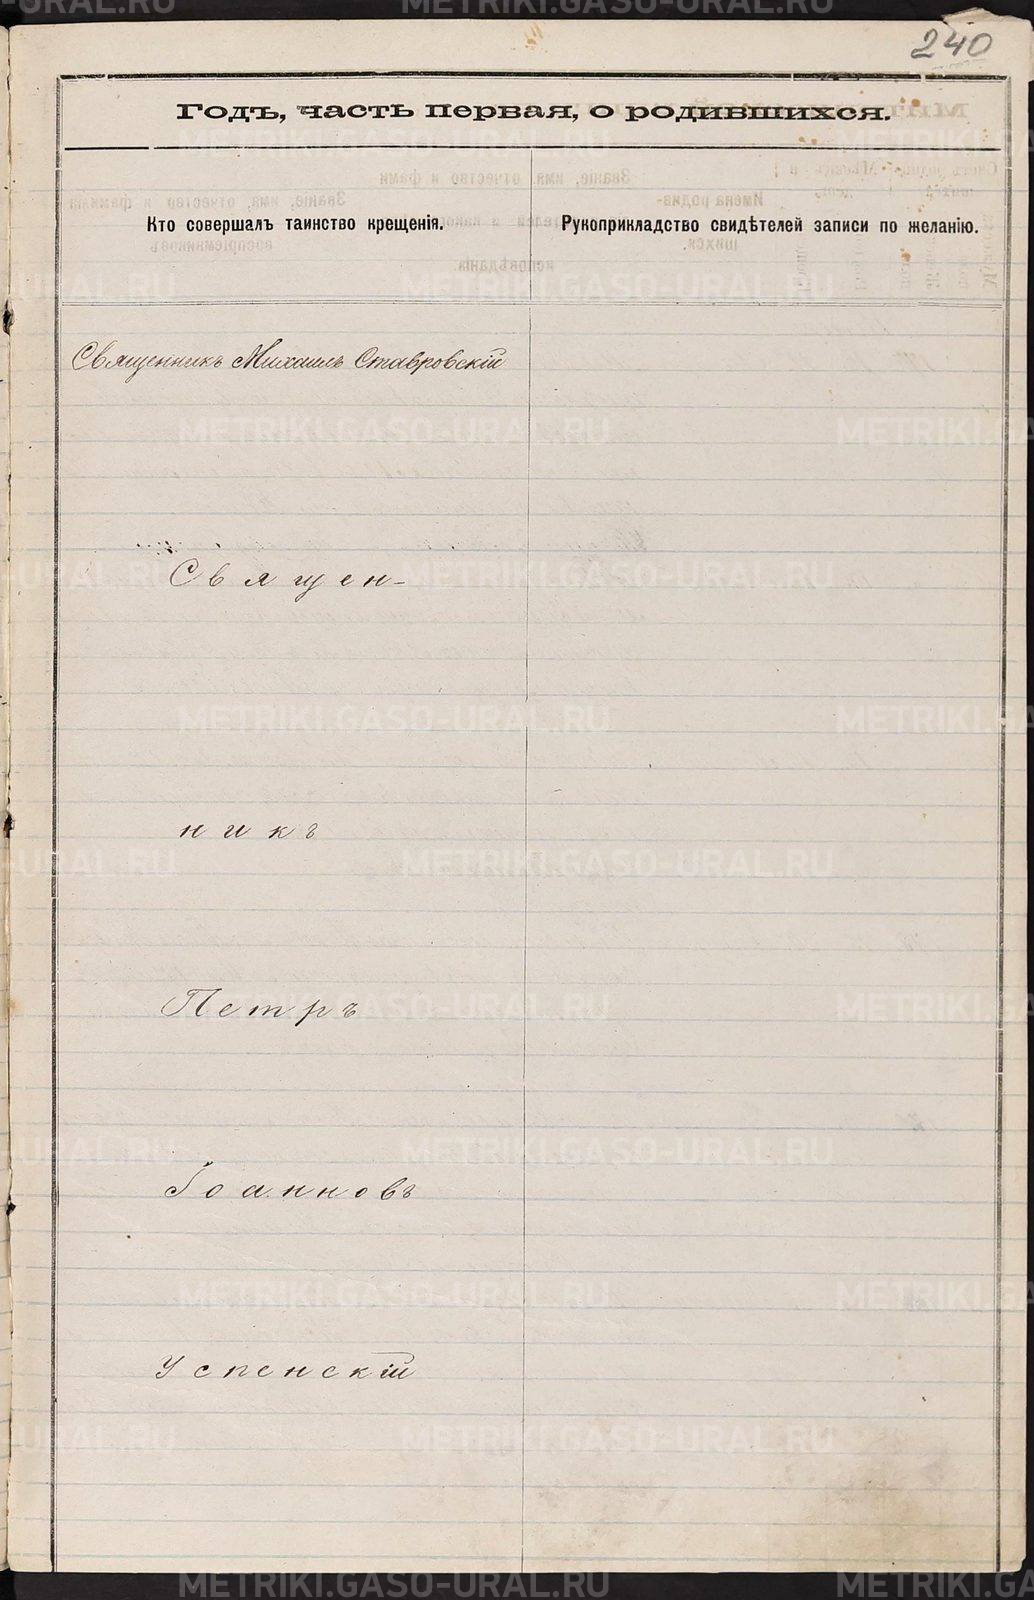 240
Годъ, часть первая, о родившихся.
Кто совершалъ таинство крещенія.
Рукоприкладство свидѣтелей записи по желанію.
Священникъ Михаилъ Ставровскій
Священ-
никъ
Петръ
Іоанновъ
Успенскій
METRIKI.GASO-URAL.RU